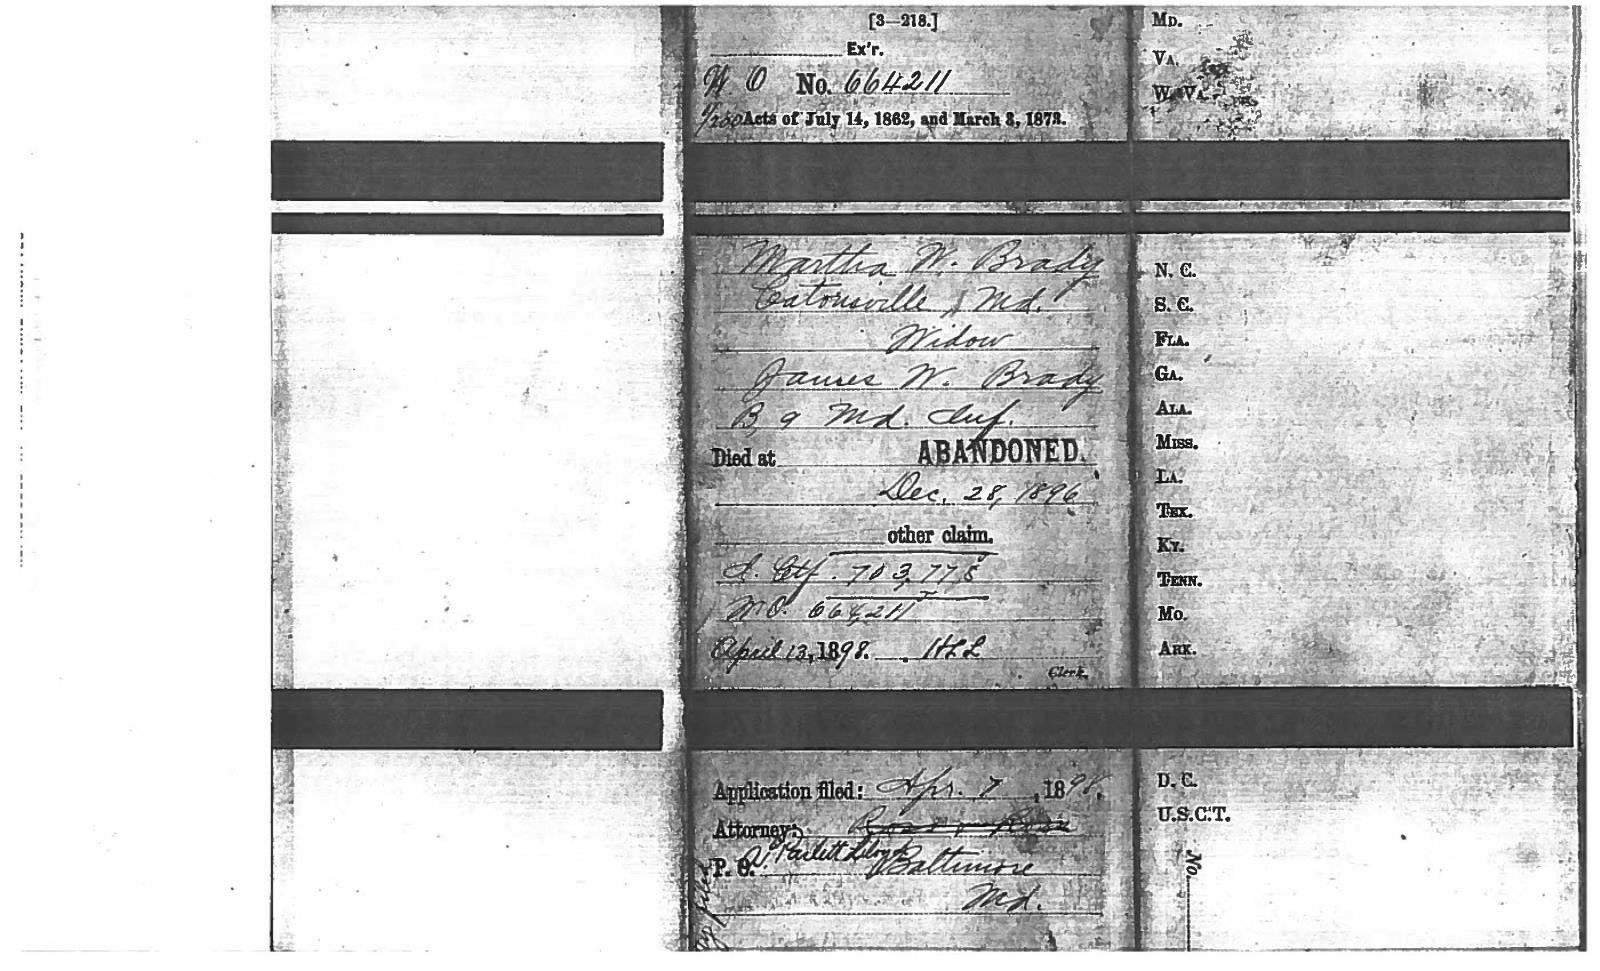 [3—218.]
Ex'r.
W O No. 664211
Acts of July 14, 1862, and March 3, 1873.
Martha W. Brady
Catonsville, Md.
Widow
James W. Brady
B, 9 Md. Inf.
Died at ABANDONED.
Dec. 28, 1896
other claim.
I. Ctf. 703,778
W.O. 664,211
April 13, 1898. HLL
Clerk.
Application filed: Apr. 7, 1898.
Attorney:
Parlett Lloyd
P. O. Baltimore
Md.
MD.
VA.
W. VA.
N. C.
S. C.
FLA.
GA.
ALA.
MISS.
LA.
TEX.
KY.
TENN.
MO.
ARK.
D. C.
U.S.C.T.
No.